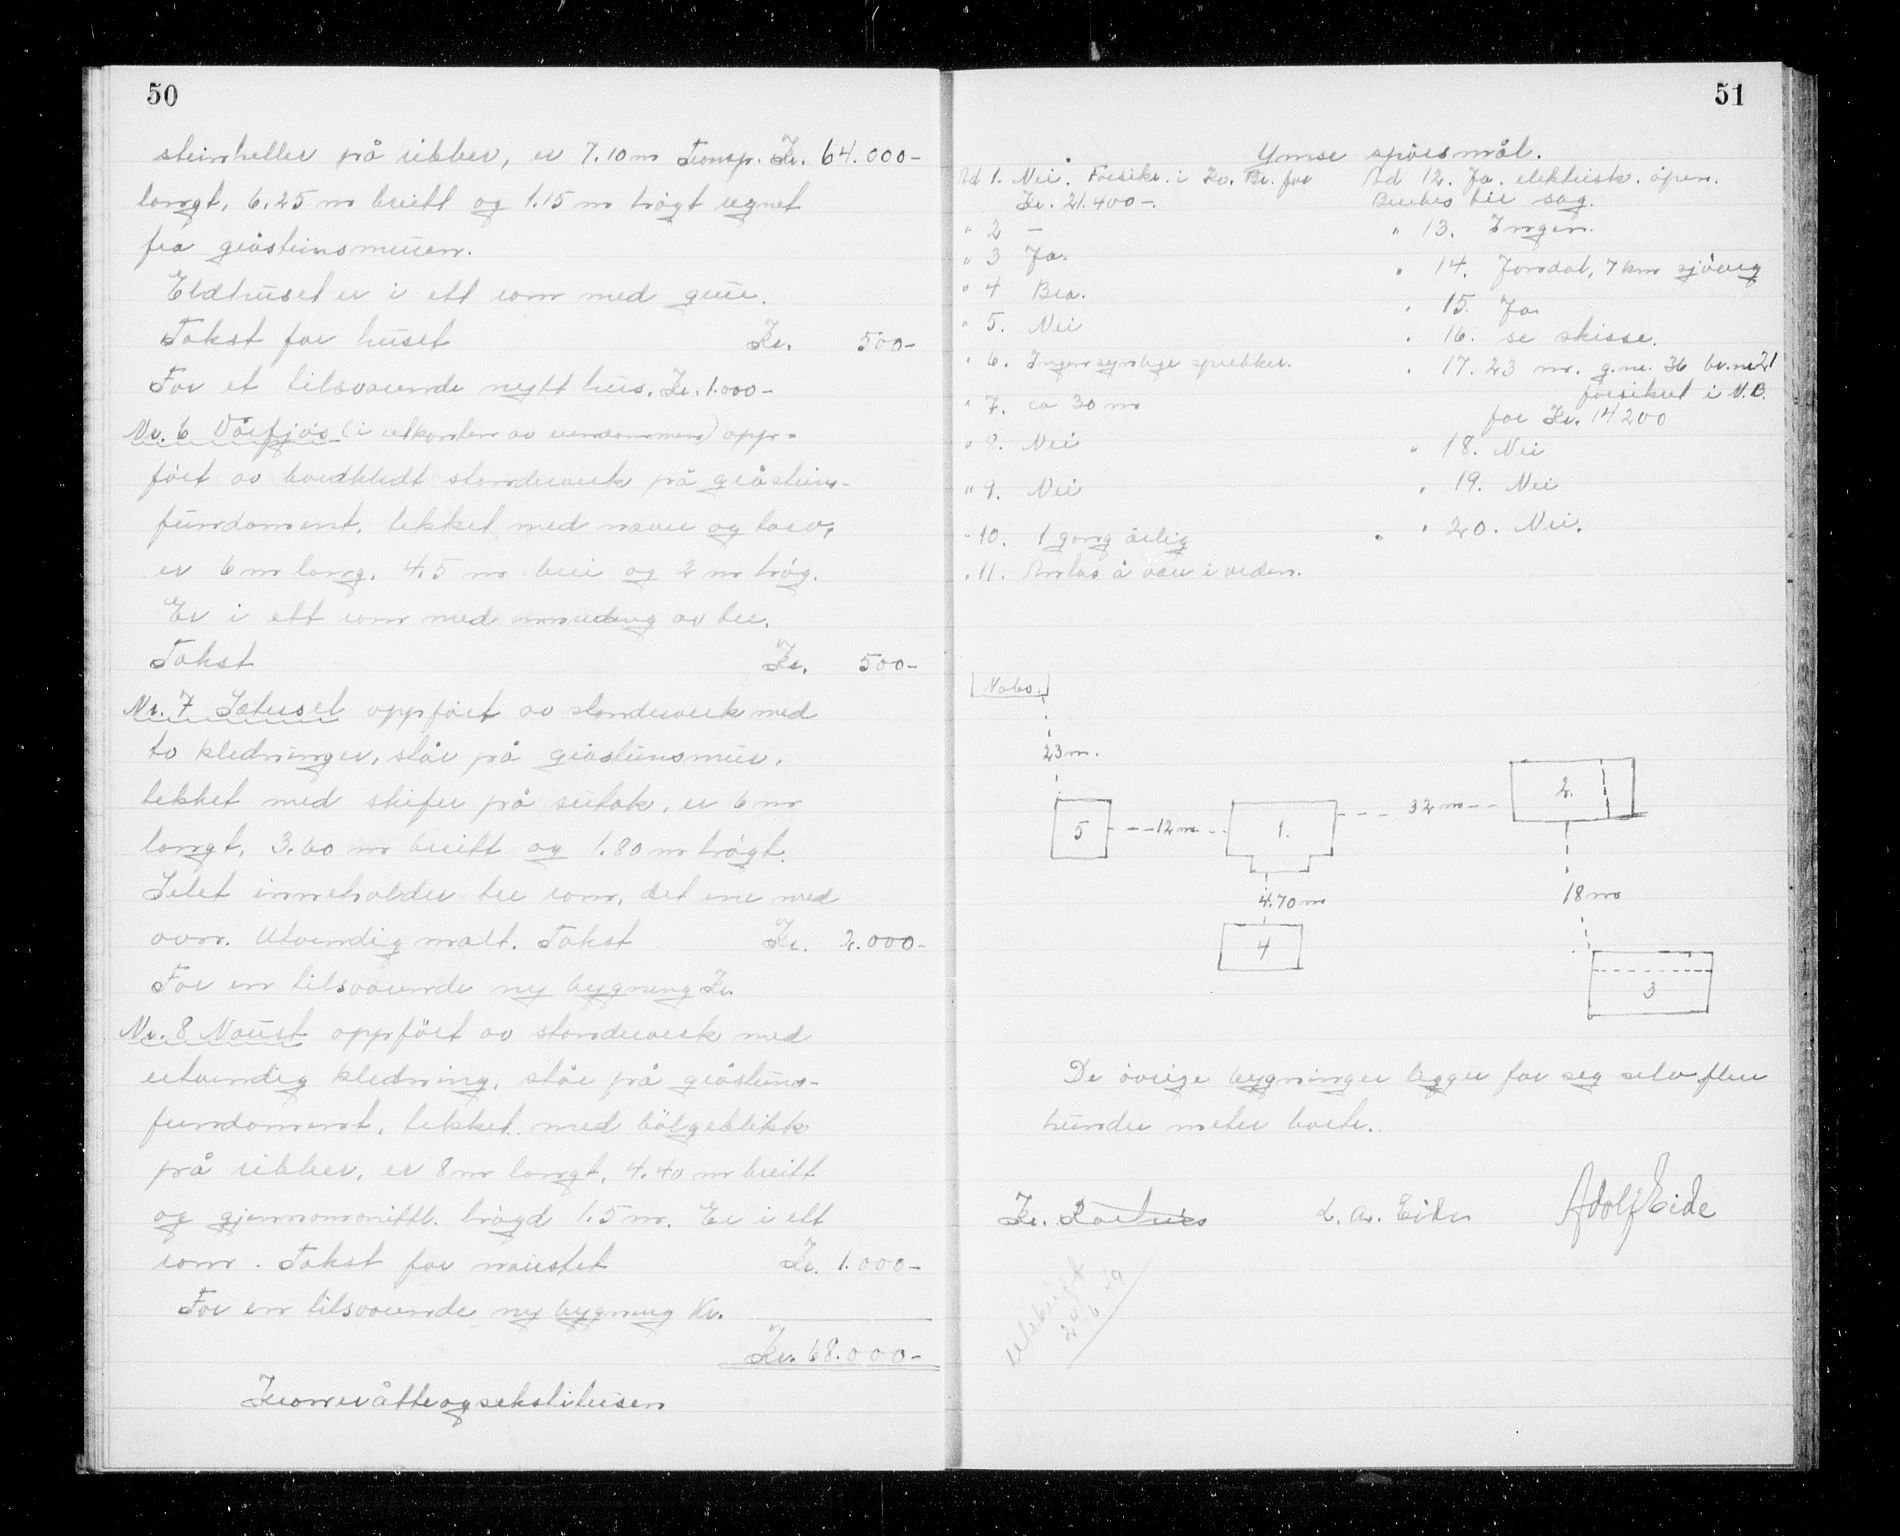 50
steinheller på ribber, er 7.10 m Transp. Kr. 64.000-
langt, 6.25 m breitt og 1.15 m högt regnet
fra gråsteinsmuren.
Eldhuset er i ett rom med grue.
Takst for huset Kr. 500-
For et tilsvarende nytt hus. Kr. 1.000-
Nr. 6 Vårfjös (i utkanten av eiendommen) opp-
fört av bordkledt standerverk på gråsteins-
fundament, tekket med never og torv,
er 6 m lang, 4.5 m brei og 2 m høg.
Er i ett rom med innredning av tre.
Takst Kr. 500-
Nr. 7 Sæterset oppfört av standerverk med
to kledninger, står på gråsteinsmur,
tekket med skifer på sutak, er 6 m
langt, 3.60 m breitt og 1.80 m högt.
Selet inneholder tre rom, det ene med
ovn. Utvendig malt. Takst Kr. 2.000-
For en tilsvarende ny bygning Kr.
Nr. 8 Naust oppfört av standerverk med
utvendig kledning, står på gråsteins-
fundament, tekket med bölgeblikk
på ribber, er 8 m langt, 4.40 m breitt
og gjennomsnittl. högd 1.5 m. Er i ett
rom. Takst for naustet Kr. 1.000-
For en tilsvarende ny bygning Kr.
Kr. 68.000-
Kroner åtteogsekstitusen
51
Ymse spörsmål.
Ad 1. Nei. Forsikr. i No. Br. for
Kr. 21.400-.
" 2 -
" 3 Ja.
" 4 Bra.
" 5. Nei
" 6. Ingen synlige sprekker.
" 7. ca 30 m
" 8. Nei
" 9. Nei
" 10. 1 gang årlig
" 11. Antas å være i orden.
Ad 12. Ja. elektrisk. åpen.
Brukes til sag.
" 13. Ingen.
" 14. Jondal, 7 km sjöveg
" 15. Ja
" 16. se skisse.
" 17. 23 m. g.nr. 36 br.nr 21
forsikret i N.B.
for Kr. 14.200
" 18. Nei
" 19. Nei
" 20. Nei.
Nabo.
23 m.
5
12 m
1.
32 m
2.
4.70 m
4
18 m
3
De övrige bygninger ligger for seg selv flere
hundre meter borte.
L. A. Eide
Adolf Eide
utskrift
24/6 59